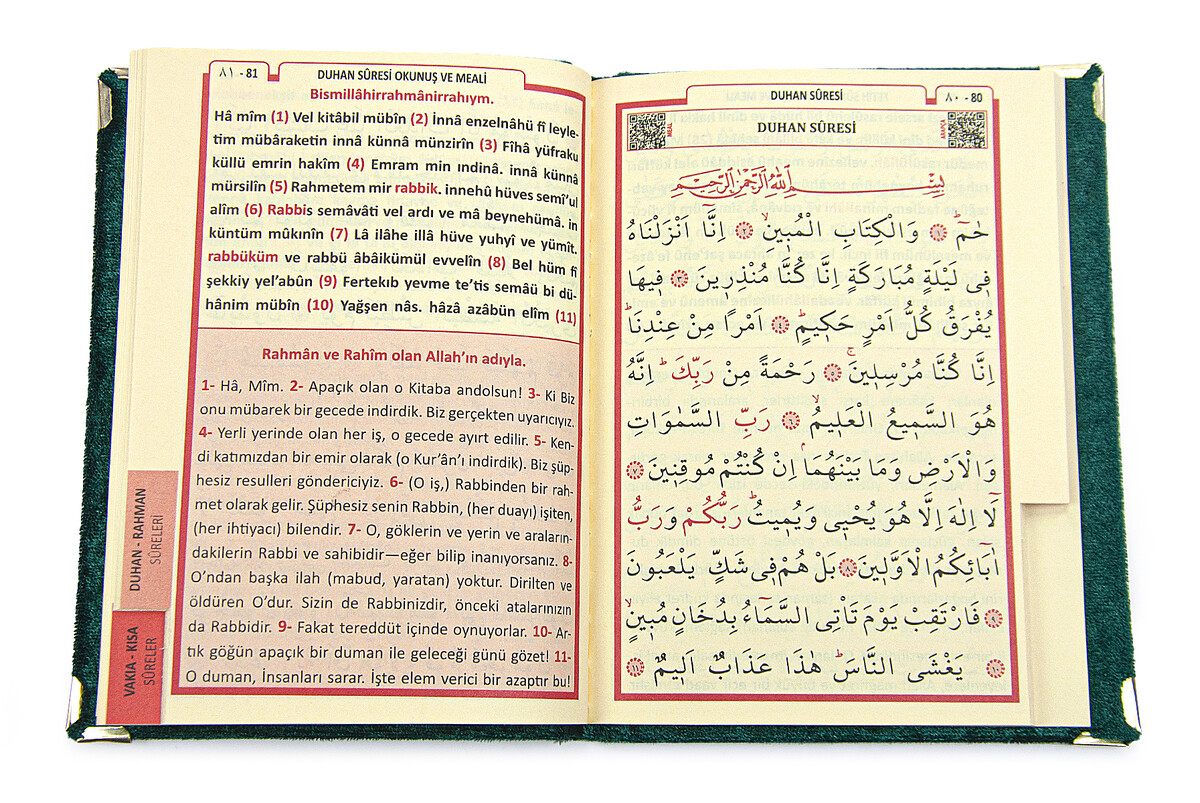 DUHAN SÛRESİ
٨٠ - 80
MEAL
DUHAN SÛRESİ
ARAPÇA
بِسْمِ اللّٰهِ الرَّحْمٰنِ الرَّحِيمِ
حٰمٓ ۚ ﴿١﴾ وَالْكِتَابِ الْمُبٖينِۙ ﴿٢﴾ اِنَّٓا اَنْزَلْنَاهُ
فٖي لَيْلَةٍ مُبَارَكَةٍ اِنَّا كُنَّا مُنْذِرٖينَ ﴿٣﴾ فٖيهَا
يُفْرَقُ كُلُّ اَمْرٍ حَكٖيمٍۚ ﴿٤﴾ اَمْرًا مِنْ عِنْدِنَاۜ
اِنَّا كُنَّا مُرْسِلٖينَۚ ﴿٥﴾ رَحْمَةً مِنْ رَبِّكَۜ اِنَّهُ
هُوَ السَّمٖيعُ الْعَلٖيمُۙ ﴿٦﴾ رَبِّ السَّمٰوَاتِ
وَالْاَرْضِ وَمَا بَيْنَهُمَاۢ اِنْ كُنْتُمْ مُوقِنٖينَ ﴿٧﴾
لَٓا اِلٰهَ اِلَّا هُوَ يُحْيٖي وَيُمٖيتُۜ رَبُّكُمْ وَرَبُّ
اٰبَٓائِكُمُ الْاَوَّلٖينَ ﴿٨﴾ بَلْ هُمْ فٖي شَكٍّ يَلْعَبُونَ
﴿٩﴾ فَارْتَقِبْ يَوْمَ تَاْتِي السَّمَٓاءُ بِدُخَانٍ مُبٖينٍۙ
﴿١٠﴾ يَغْشَى النَّاسَۜ هٰذَا عَذَابٌ اَلٖيمٌ ﴿١١﴾
٨١ - 81
DUHAN SÛRESİ OKUNUŞ VE MEALİ
Bismillâhirrahmânirrahıym.
Hâ mîm (1) Vel kitâbil mübîn (2) İnnâ enzelnâhü fî leyle-
tim mübâraketin innâ künnâ münzirîn (3) Fîhâ yüfraku
küllü emrin hakîm (4) Emram min ındinâ. innâ künnâ
mürsilîn (5) Rahmetem mir rabbik. innehû hüves semî'ul
alîm (6) Rabbis semâvâti vel ardı ve mâ beynehümâ. in
küntüm mûkınîn (7) Lâ ilâhe illâ hüve yuhyî ve yümît.
rabbüküm ve rabbü âbâikümül evvelîn (8) Bel hüm fî
şekkiy yel'abûn (9) Fertekıb yevme te'tis semâü bi dü-
hânim mübîn (10) Yağşen nâs. hâzâ azâbün elîm (11)
Rahmân ve Rahîm olan Allah'ın adıyla.
1- Hâ, Mîm. 2- Apaçık olan o Kitaba andolsun! 3- Ki Biz
onu mübarek bir gecede indirdik. Biz gerçekten uyarıcıyız.
4- Yerli yerinde olan her iş, o gecede ayırt edilir. 5- Ken-
di katımızdan bir emir olarak (o Kur'ân'ı indirdik). Biz şüp-
hesiz resulleri göndericiyiz. 6- (O iş,) Rabbinden bir rah-
met olarak gelir. Şüphesiz senin Rabbin, (her duayı) işiten,
(her ihtiyacı) bilendir. 7- O, göklerin ve yerin ve araların-
dakilerin Rabbi ve sahibidir—eğer bilip inanıyorsanız. 8-
O'ndan başka ilah (mabud, yaratan) yoktur. Dirilten ve
öldüren O'dur. Sizin de Rabbinizdir, önceki atalarınızın
da Rabbidir. 9- Fakat tereddüt içinde oynuyorlar. 10- Ar-
tık göğün apaçık bir duman ile geleceği günü gözet! 11-
O duman, İnsanları sarar. İşte elem verici bir azaptır bu!
DUHAN - RAHMAN
SÛRELERİ
VAKIA - KISA
SÛRELER